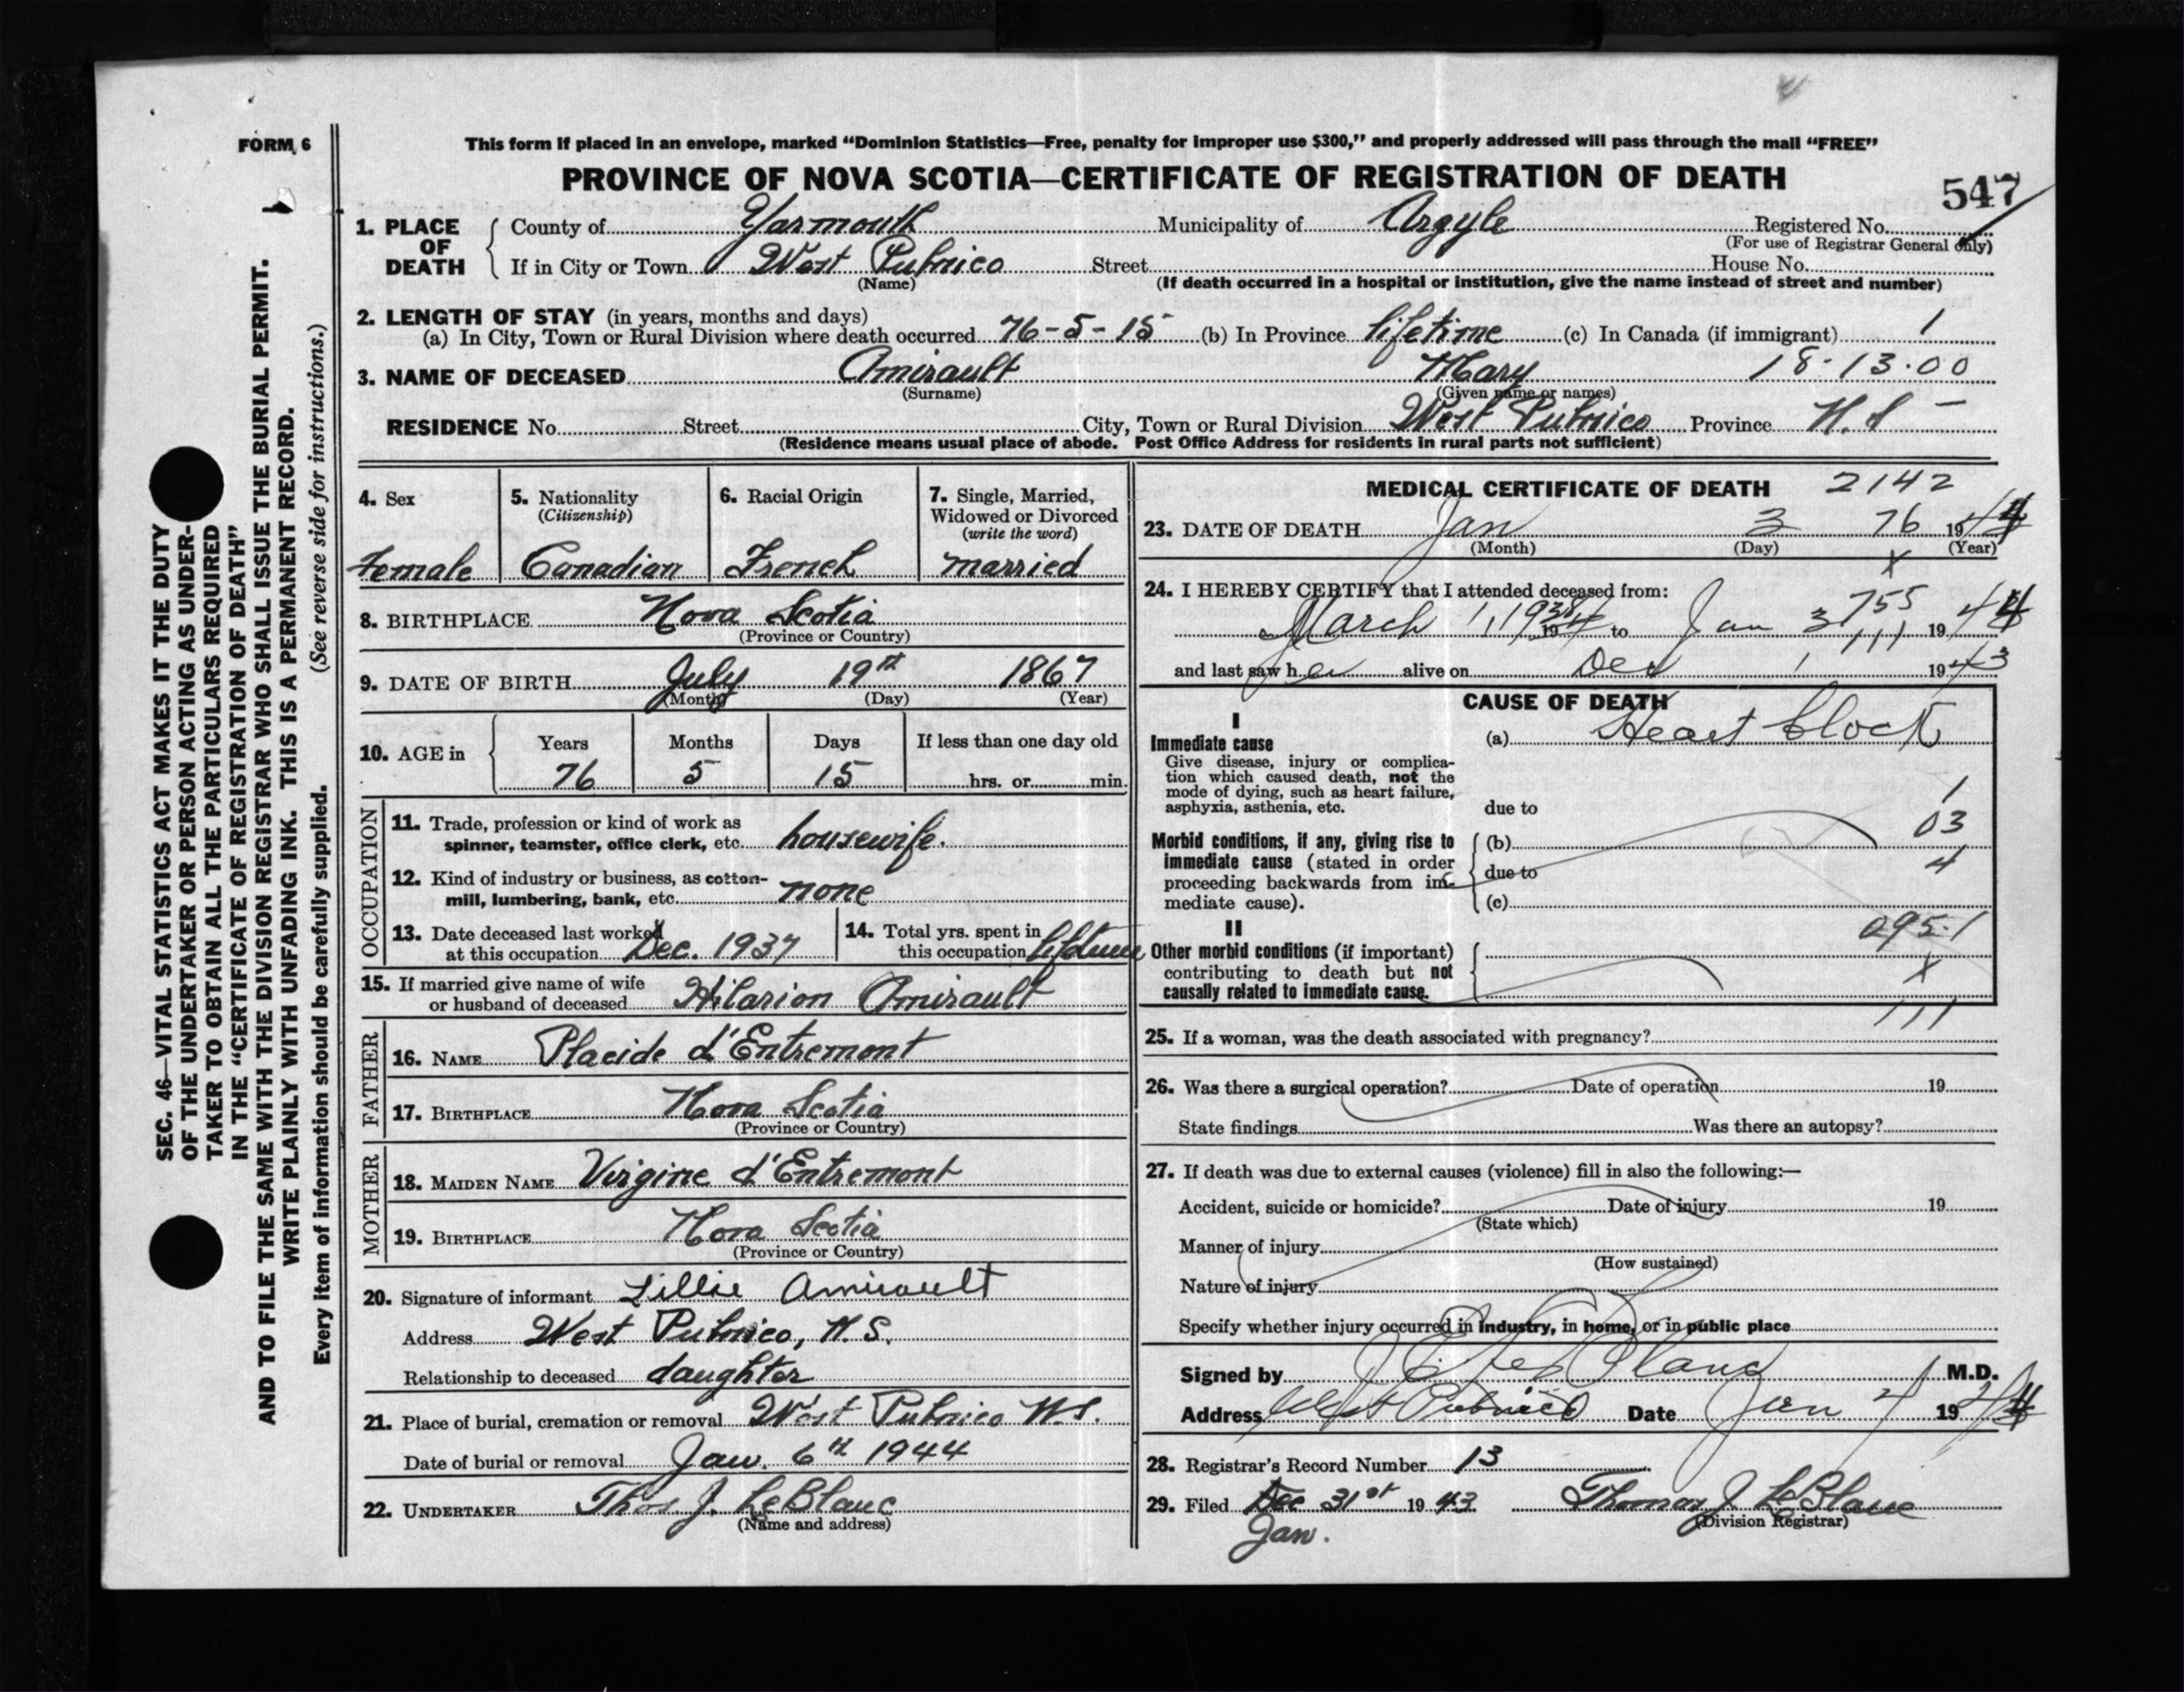 FORM 6
This form if placed in an envelope, marked "Dominion Statistics—Free, penalty for improper use $300," and properly addressed will pass through the mail "FREE"
PROVINCE OF NOVA SCOTIA—CERTIFICATE OF REGISTRATION OF DEATH
547
1. PLACE OF DEATH County of Yarmouth Municipality of Argyle Registered No.
(For use of Registrar General only)
If in City or Town West Pubnico Street House No.
(Name) (If death occurred in a hospital or institution, give the name instead of street and number)
2. LENGTH OF STAY (in years, months and days)
(a) In City, Town or Rural Division where death occurred 76-5-15 (b) In Province lifetime (c) In Canada (if immigrant) 1
3. NAME OF DECEASED Amirault Mary 18-13.00
(Surname) (Given name or names)
RESIDENCE No. Street City, Town or Rural Division West Pubnico Province N.S —
(Residence means usual place of abode. Post Office Address for residents in rural parts not sufficient)
4. Sex
Female
5. Nationality
(Citizenship)
Canadian
6. Racial Origin
French
7. Single, Married,
Widowed or Divorced
(write the word)
married
8. BIRTHPLACE Nova Scotia
(Province or Country)
9. DATE OF BIRTH July 19th 1867
(Month) (Day) (Year)
10. AGE in Years Months Days If less than one day old
76 5 15 hrs. or min.
OCCUPATION
11. Trade, profession or kind of work as
spinner, teamster, office clerk, etc. housewife.
12. Kind of industry or business, as cotton-
mill, lumbering, bank, etc. none
13. Date deceased last worked
at this occupation Dec. 1937
14. Total yrs. spent in
this occupation lifetime
15. If married give name of wife
or husband of deceased Hilarion Amirault
FATHER
16. NAME Placide d'Entremont
17. BIRTHPLACE Nova Scotia
(Province or Country)
MOTHER
18. MAIDEN NAME Virginie d'Entremont
19. BIRTHPLACE Nova Scotia
(Province or Country)
20. Signature of informant Lillie Amirault
Address West Pubnico, N.S.
Relationship to deceased daughter
21. Place of burial, cremation or removal West Pubnico N.S.
Date of burial or removal Jan. 6th 1944
22. UNDERTAKER Thos J. LeBlanc
(Name and address)
MEDICAL CERTIFICATE OF DEATH 2142
23. DATE OF DEATH Jan 3 76 1944
(Month) (Day) (Year)
x
24. I HEREBY CERTIFY that I attended deceased from:
755
March 1, 19 to Jan 3 1944
111
and last saw her alive on Dec 1 1943
CAUSE OF DEATH
I
Immediate cause
Give disease, injury or complica-
tion which caused death, not the
mode of dying, such as heart failure,
asphyxia, asthenia, etc.
(a) Heart block
due to
1
03
4
Morbid conditions, if any, giving rise to
immediate cause (stated in order
proceeding backwards from im-
mediate cause).
(b)
due to
(c)
II
095.1
x
Other morbid conditions (if important)
contributing to death but not
causally related to immediate cause.
111
25. If a woman, was the death associated with pregnancy?
26. Was there a surgical operation? Date of operation 19
State findings Was there an autopsy?
27. If death was due to external causes (violence) fill in also the following:—
Accident, suicide or homicide? Date of injury 19
(State which)
Manner of injury
(How sustained)
Nature of injury
Specify whether injury occurred in industry, in home, or in public place
Signed by LeBlanc M.D.
Address West Pubnico Date Jan 4 1944
28. Registrar's Record Number 13
29. Filed Dec 31st 1943 Thomas J LeBlanc
Jan. (Division Registrar)
SEC. 46—VITAL STATISTICS ACT MAKES IT THE DUTY
OF THE UNDERTAKER OR PERSON ACTING AS UNDER-
TAKER TO OBTAIN ALL THE PARTICULARS REQUIRED
IN THE "CERTIFICATE OF REGISTRATION OF DEATH"
AND TO FILE THE SAME WITH THE DIVISION REGISTRAR WHO SHALL ISSUE THE BURIAL PERMIT.
WRITE PLAINLY WITH UNFADING INK. THIS IS A PERMANENT RECORD.
Every item of information should be carefully supplied. (See reverse side for instructions.)